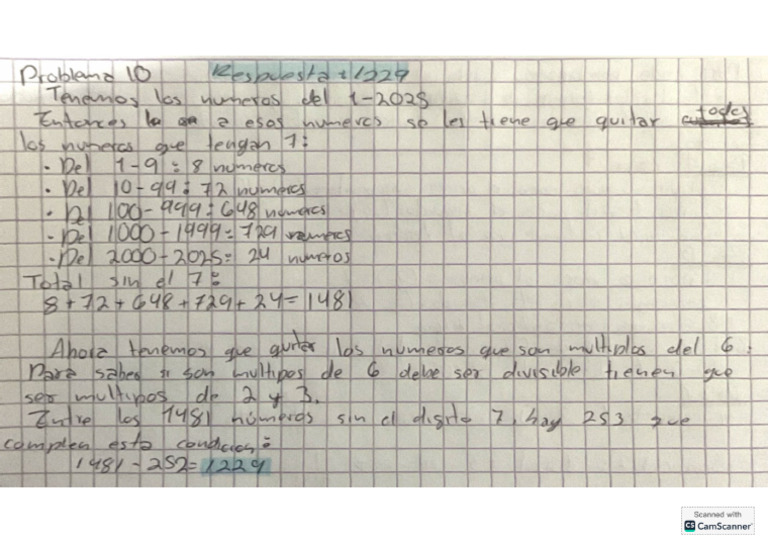 Problema 10 Respuesta: 1229
Tenemos los numeros del 1-2025
Entonces a esos numeros se les tiene que quitar todos
los numeros que tengan 7:
· Del 1-9: 8 numeros
· Del 10-99: 72 numeros
· Del 100-999: 648 numeros
· Del 1000-1999= 729 numeros
· Del 2000-2025= 24 numeros
Total sin el 7:
8+72+648+729+24=1481
Ahora tenemos que quitar los numeros que son multiplos del 6:
Para saber si son multipos de 6 debe ser divisible tienen que
ser multipos de 2 y 3.
Entre los 1481 números sin el digito 7, hay 253 que
complen esta condicion:
1481-252=1229
Scanned with
CS CamScanner